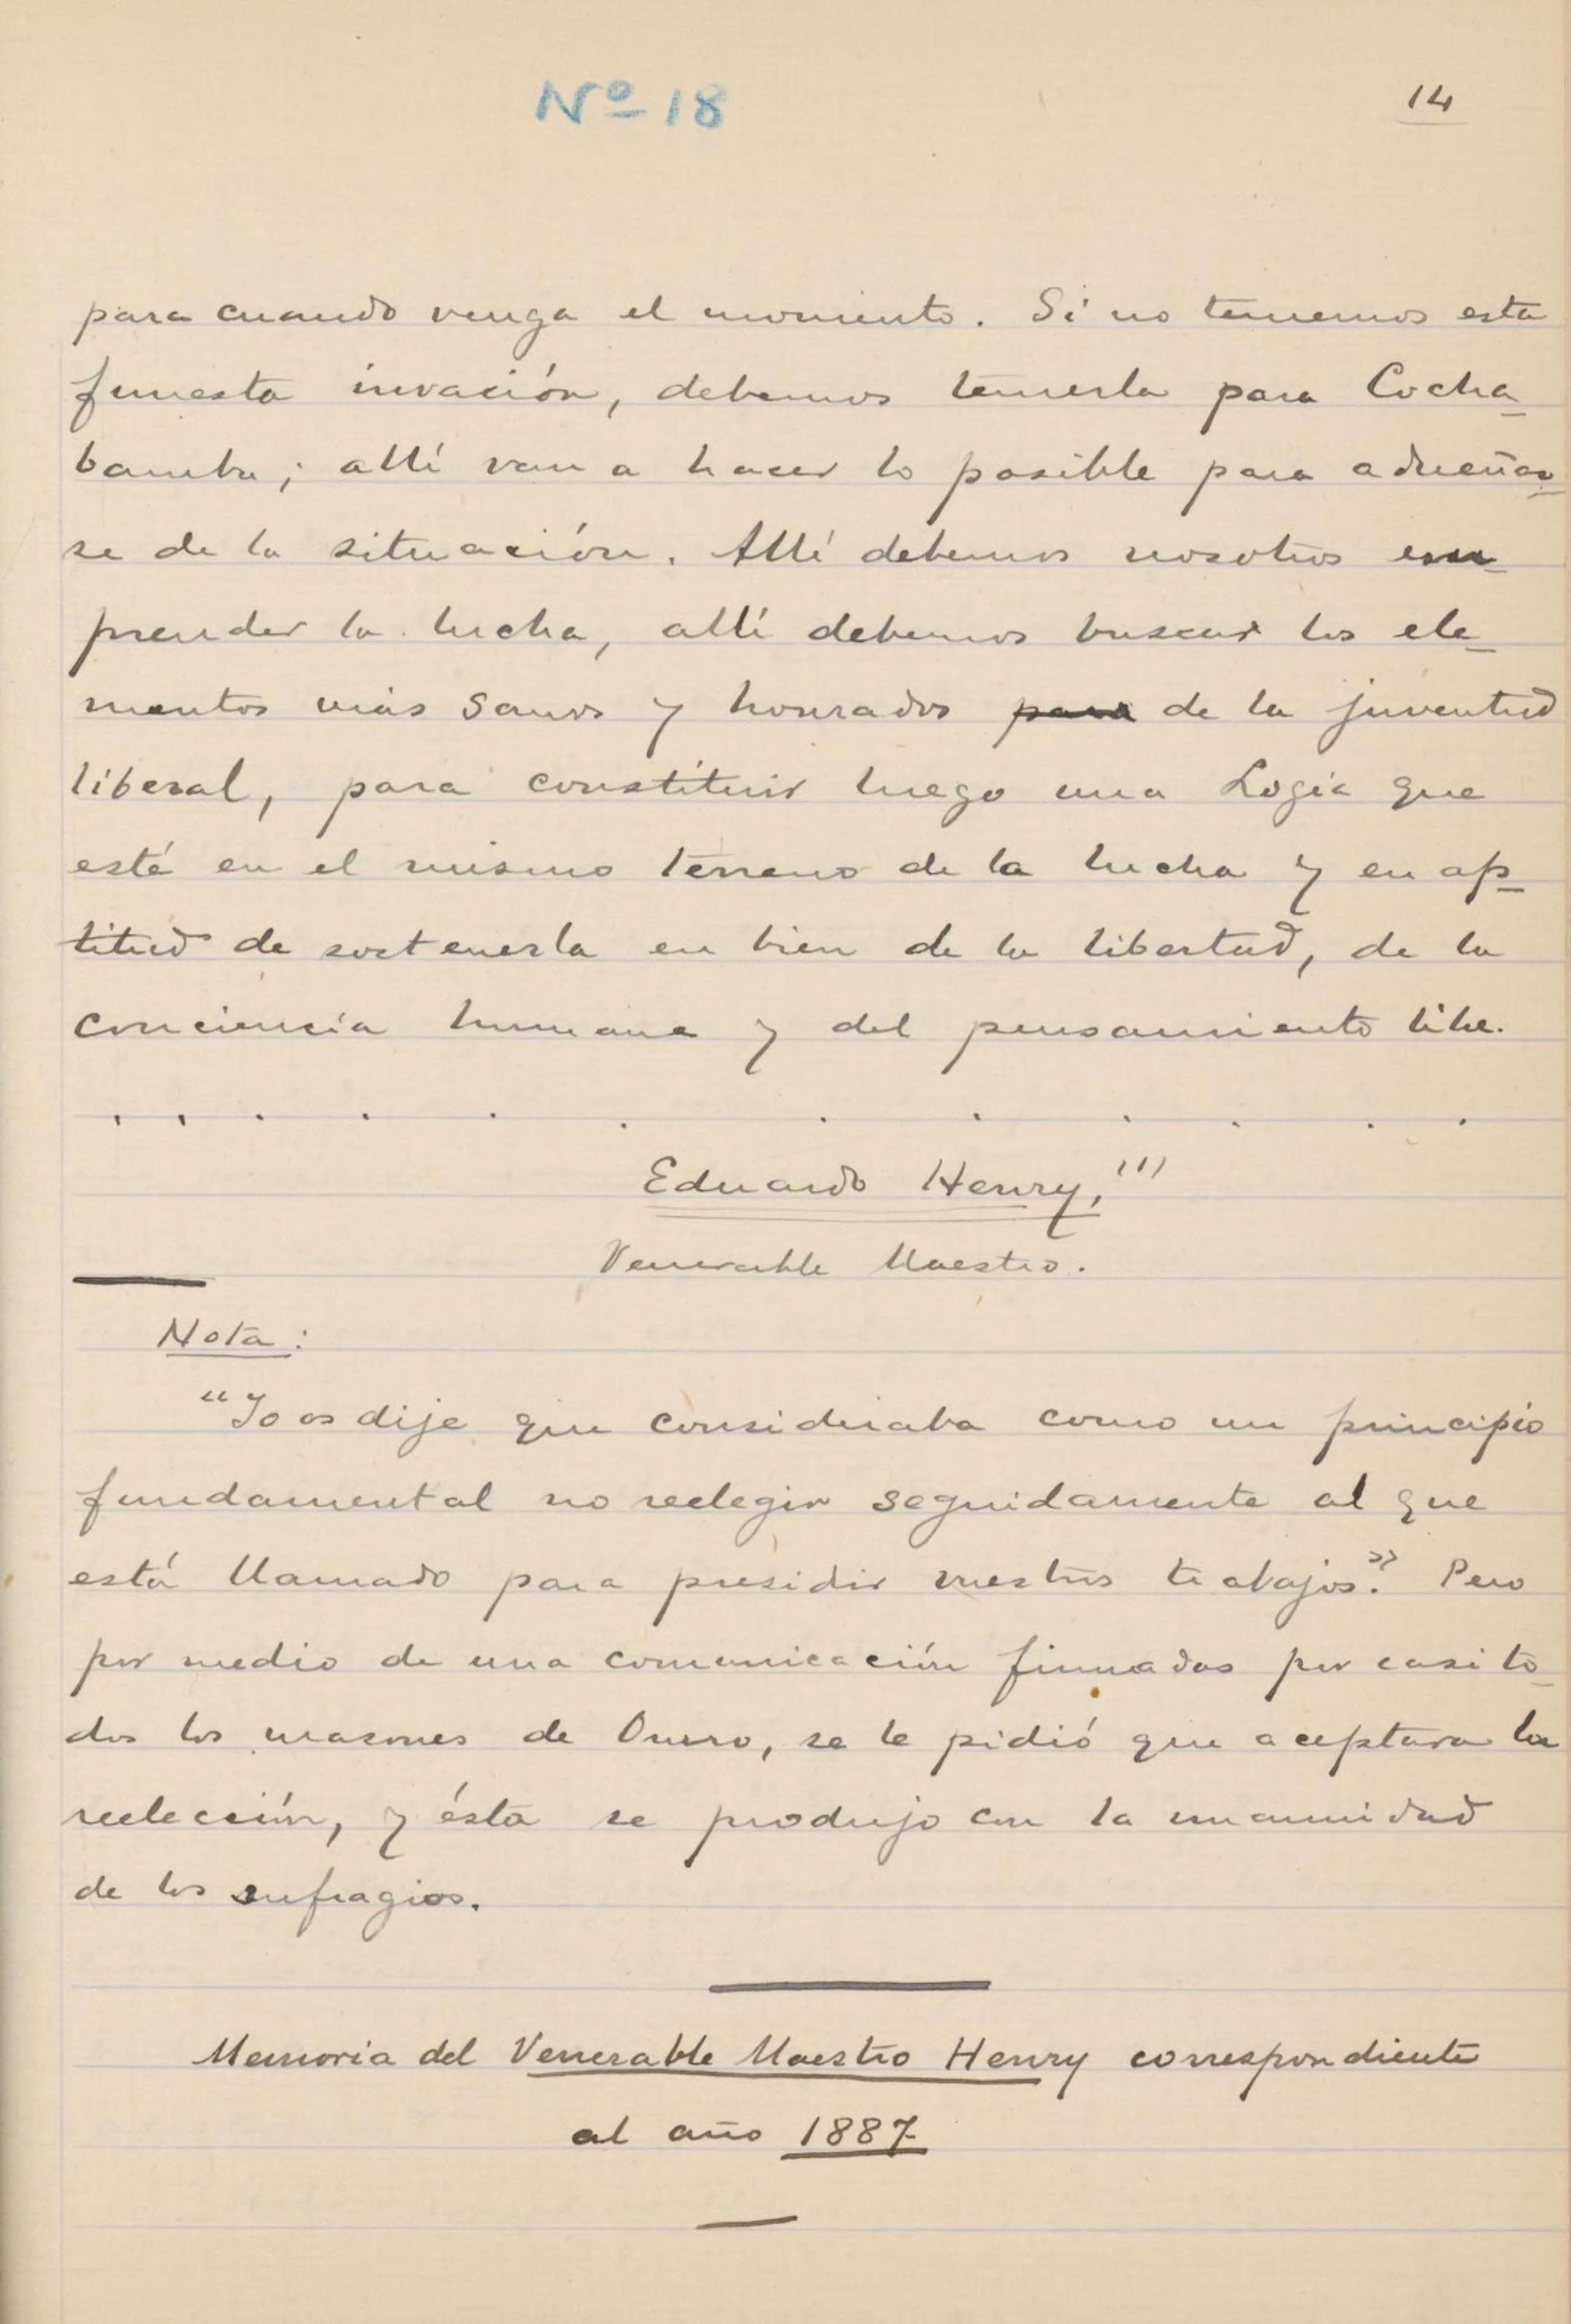 Nº 18
14
para cuando venga el momento. Si no tememos esta
funesta invación, debemos temerla para Cocha-
bamba; allí van a hacer lo posible para adueñar-
se de la situación. Allí debemos nosotros em-
prender la lucha, allí debemos buscar los ele-
mentos más sanos y honrados para de la juventud
liberal, para constituir luego una Logia que
esté en el mismo terreno de la lucha y en ap-
titud de sostenerla en bien de la libertad, de la
conciencia humana y del pensamiento libre.
. . . . . . . . . . . .
Eduardo Henry,"'
Venerable Maestro.
Nota:
"Yo os dije que consideraba como un principio
fundamental no reelegir seguidamente al que
está llamado para presidir vuestros trabajos". Pero
por medio de una comunicación firmadas por casi to-
dos los masones de Oruro, se le pidió que aceptara la
reelección, y ésta se produjo con la unanimidad
de los sufragios.
Memoria del Venerable Maestro Henry correspondiente
al año 1887